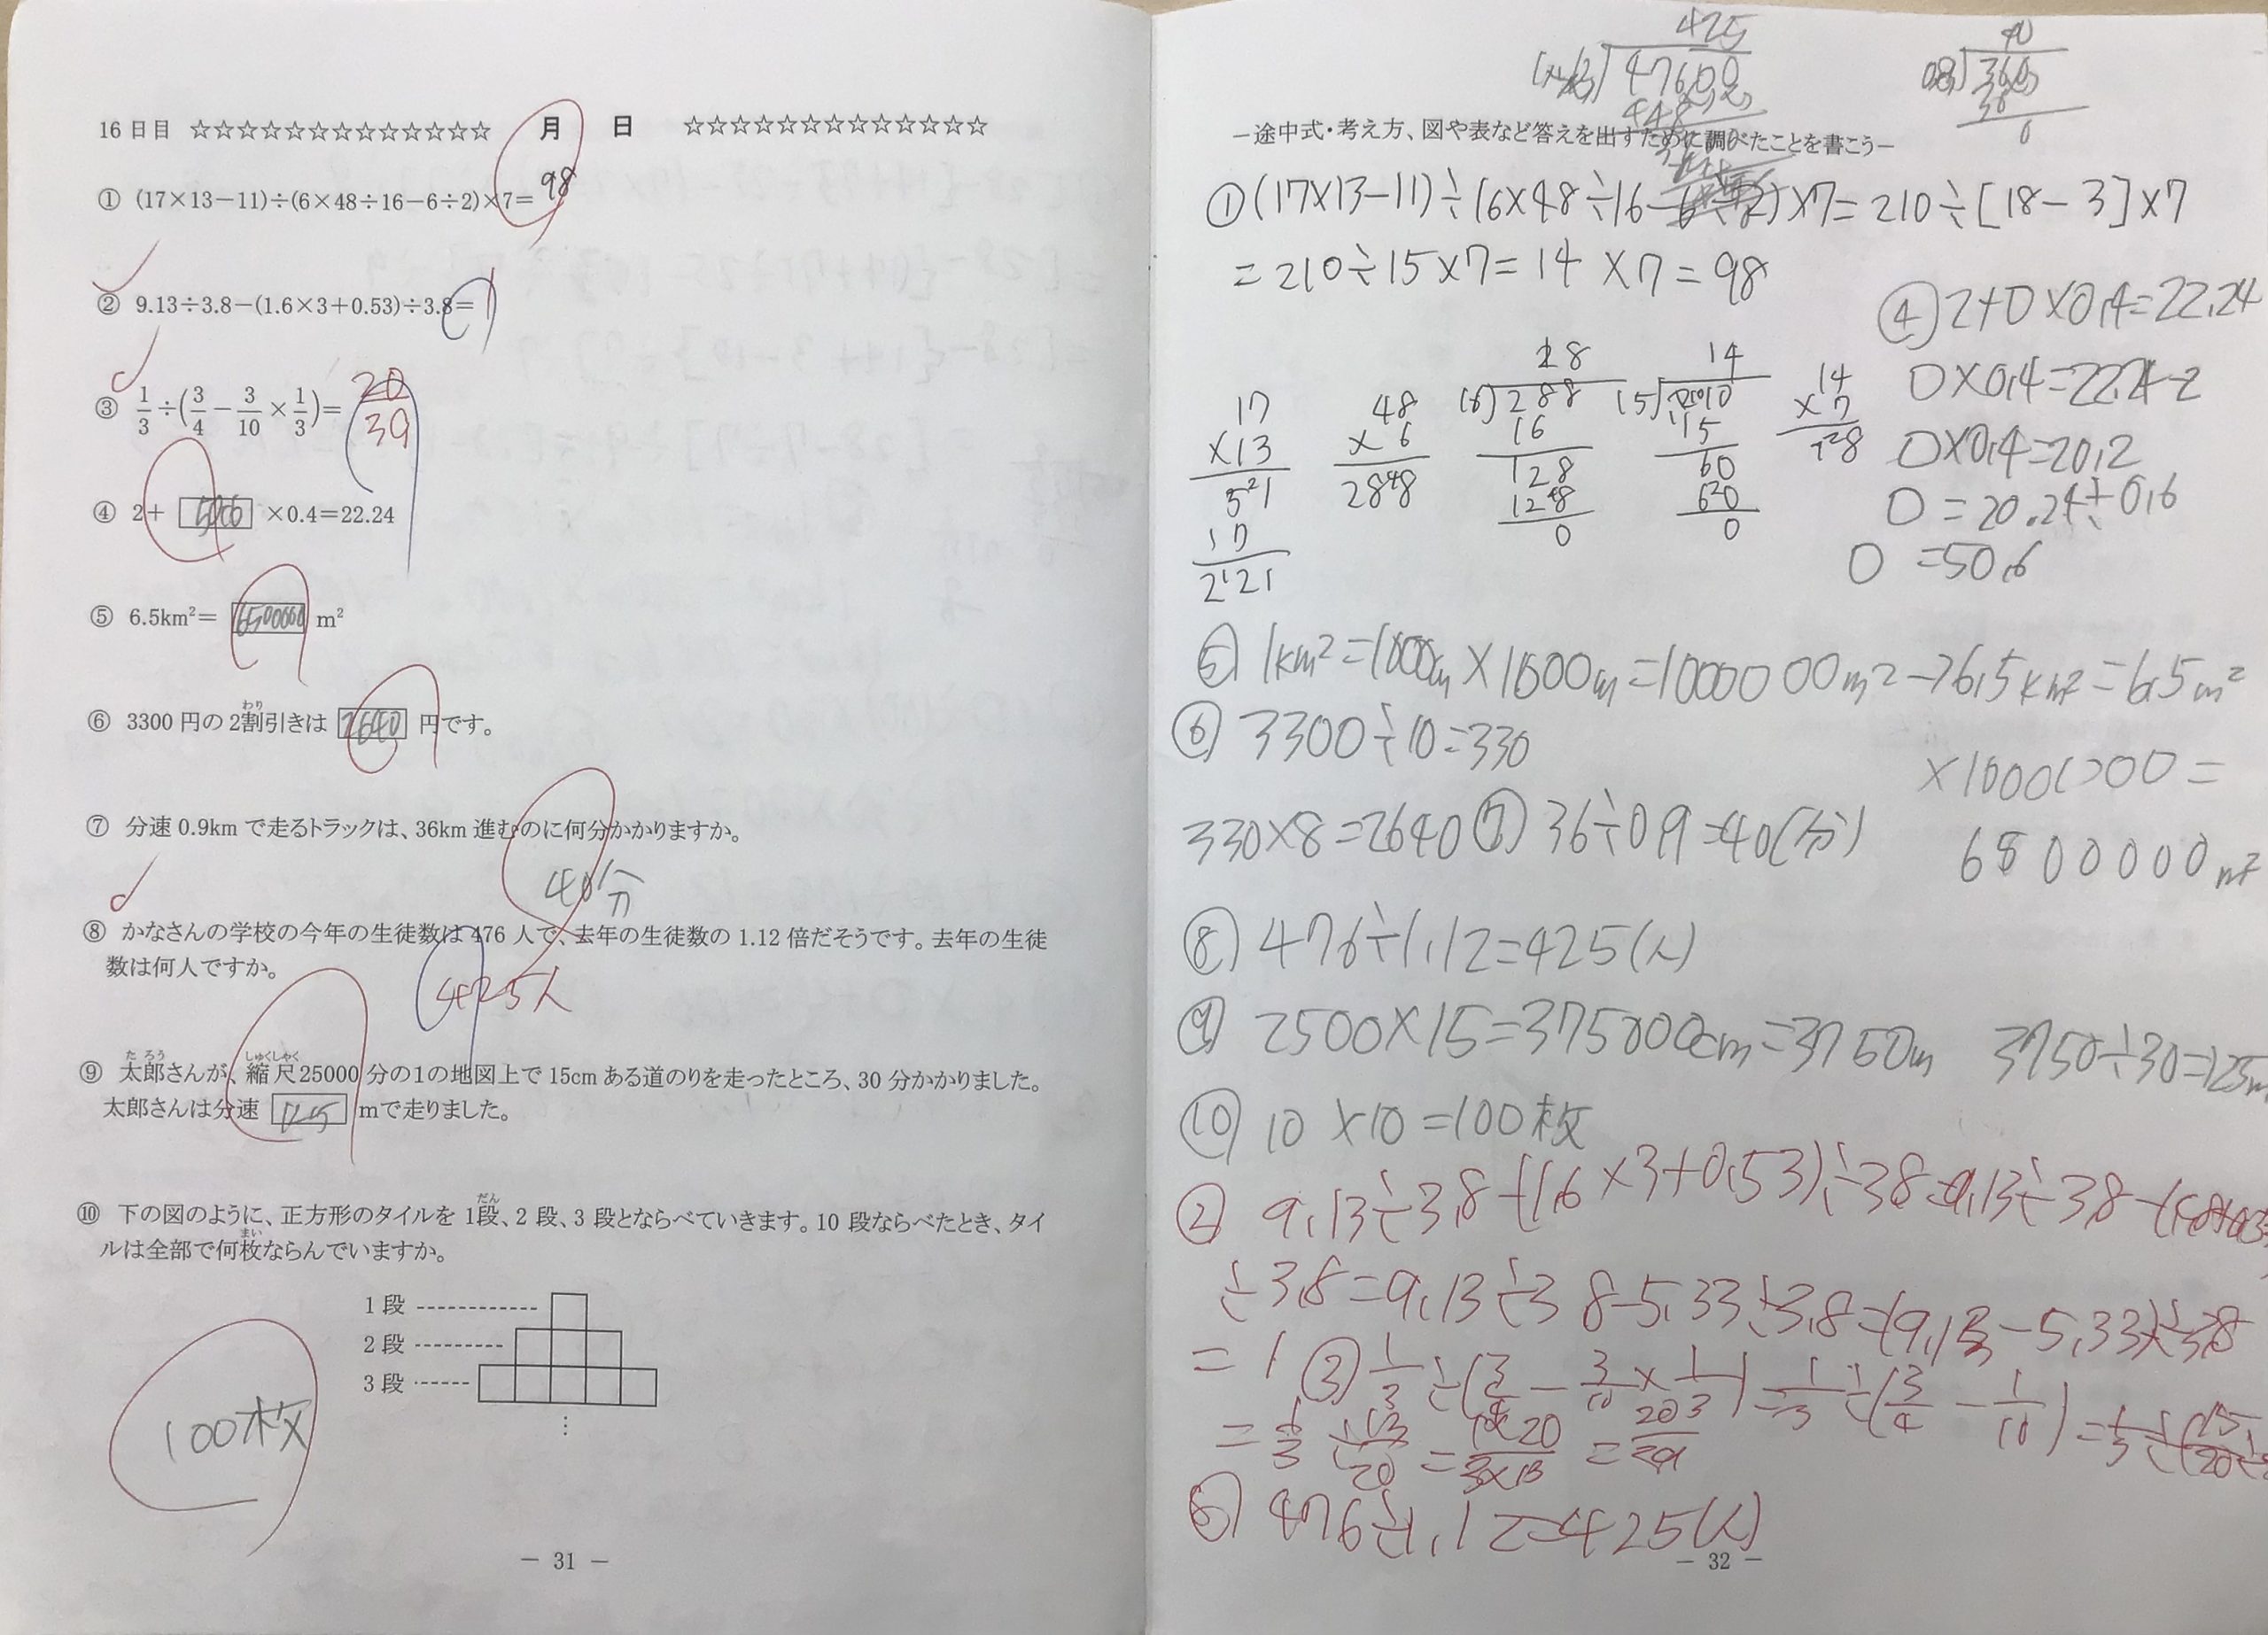 16日目 ☆☆☆☆☆☆☆☆☆☆☆☆☆ 月 日 ☆☆☆☆☆☆☆☆☆☆☆☆☆
① (17×13−11)÷(6×48÷16−6÷2)×7= 98
② 9.13÷3.8−(1.6×3+0.53)÷3.8= 1
③ 1/3÷(3/4−3/10×1/3)= 20/39
④ 2+ 50.6 ×0.4=22.24
⑤ 6.5km²= 6500000 m²
⑥ 3300円の2割引きは 2640 円です。
わり
⑦ 分速0.9kmで走るトラックは、36km進むのに何分かかりますか。
40分
⑧ かなさんの学校の今年の生徒数は476人で、去年の生徒数の1.12倍だそうです。去年の生徒
数は何人ですか。
425人
たろう しゅくしゃく
⑨ 太郎さんが、縮尺25000分の1の地図上で15cmある道のりを走ったところ、30分かかりました。
太郎さんは分速 125 mで走りました。
だん
⑩ 下の図のように、正方形のタイルを1段、2段、3段とならべていきます。10段ならべたとき、タイ
まい
ルは全部で何枚ならんでいますか。
1段
2段
3段
⋮
100枚
− 31 −
425
47600
448
40
360
36
0
−途中式・考え方、図や表など答えを出すために調べたことを書こう−
①(17×13−11)÷(6×48÷16−6÷2)×7=210÷[18−3]×7
=210÷15×7=14×7=98
17
×13
51
17
221
48
×6
288
18
16)288
16
128
128
0
14
15)210
15
60
60
0
14
×7
98
④2+□×0.4=22.24
□×0.4=22.24−2
□×0.4=20.2
□=20.24÷0.6
□=50.6
⑤ 1km²=1000m×1000m=1000000m²→6.5km²=6.5m²
×1000000=
6500000m²
⑥ 3300÷10=330
330×8=2640
⑦ 36÷0.9=40(分)
⑧ 476÷1.12=425(人)
⑨ 2500×15=375000cm=3750m 3750÷30=125m
⑩ 10×10=100枚
② 9.13÷3.8−(1.6×3+0.53)÷3.8=9.13÷3.8−(4.8+0.53)
÷3.8=9.13÷3.8−5.33÷3.8=(9.13−5.33)÷3.8
=1
③ 1/3÷(3/4−3/10×1/3)=1/3÷(3/4−1/10)=1/3÷(15/20
=1/3÷13/20=1×20/3×13=20/39
⑧ 476÷1.12=425(人)
− 32 −